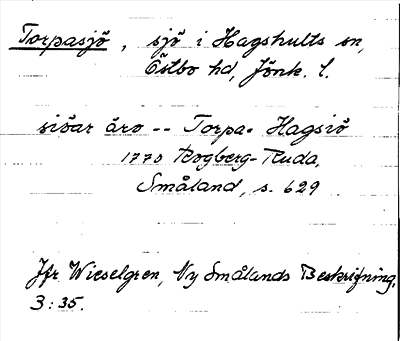 Torpasjö, sjö i Hagshults sn,
Östbo hd, Jönk. l.
siöar äro -- Torpa- Hagsiö
1770 Rogberg-Ruda,
Småland, s. 629
Jfr Wieselgren, Ny Smålands Beskrifning,
3:35.